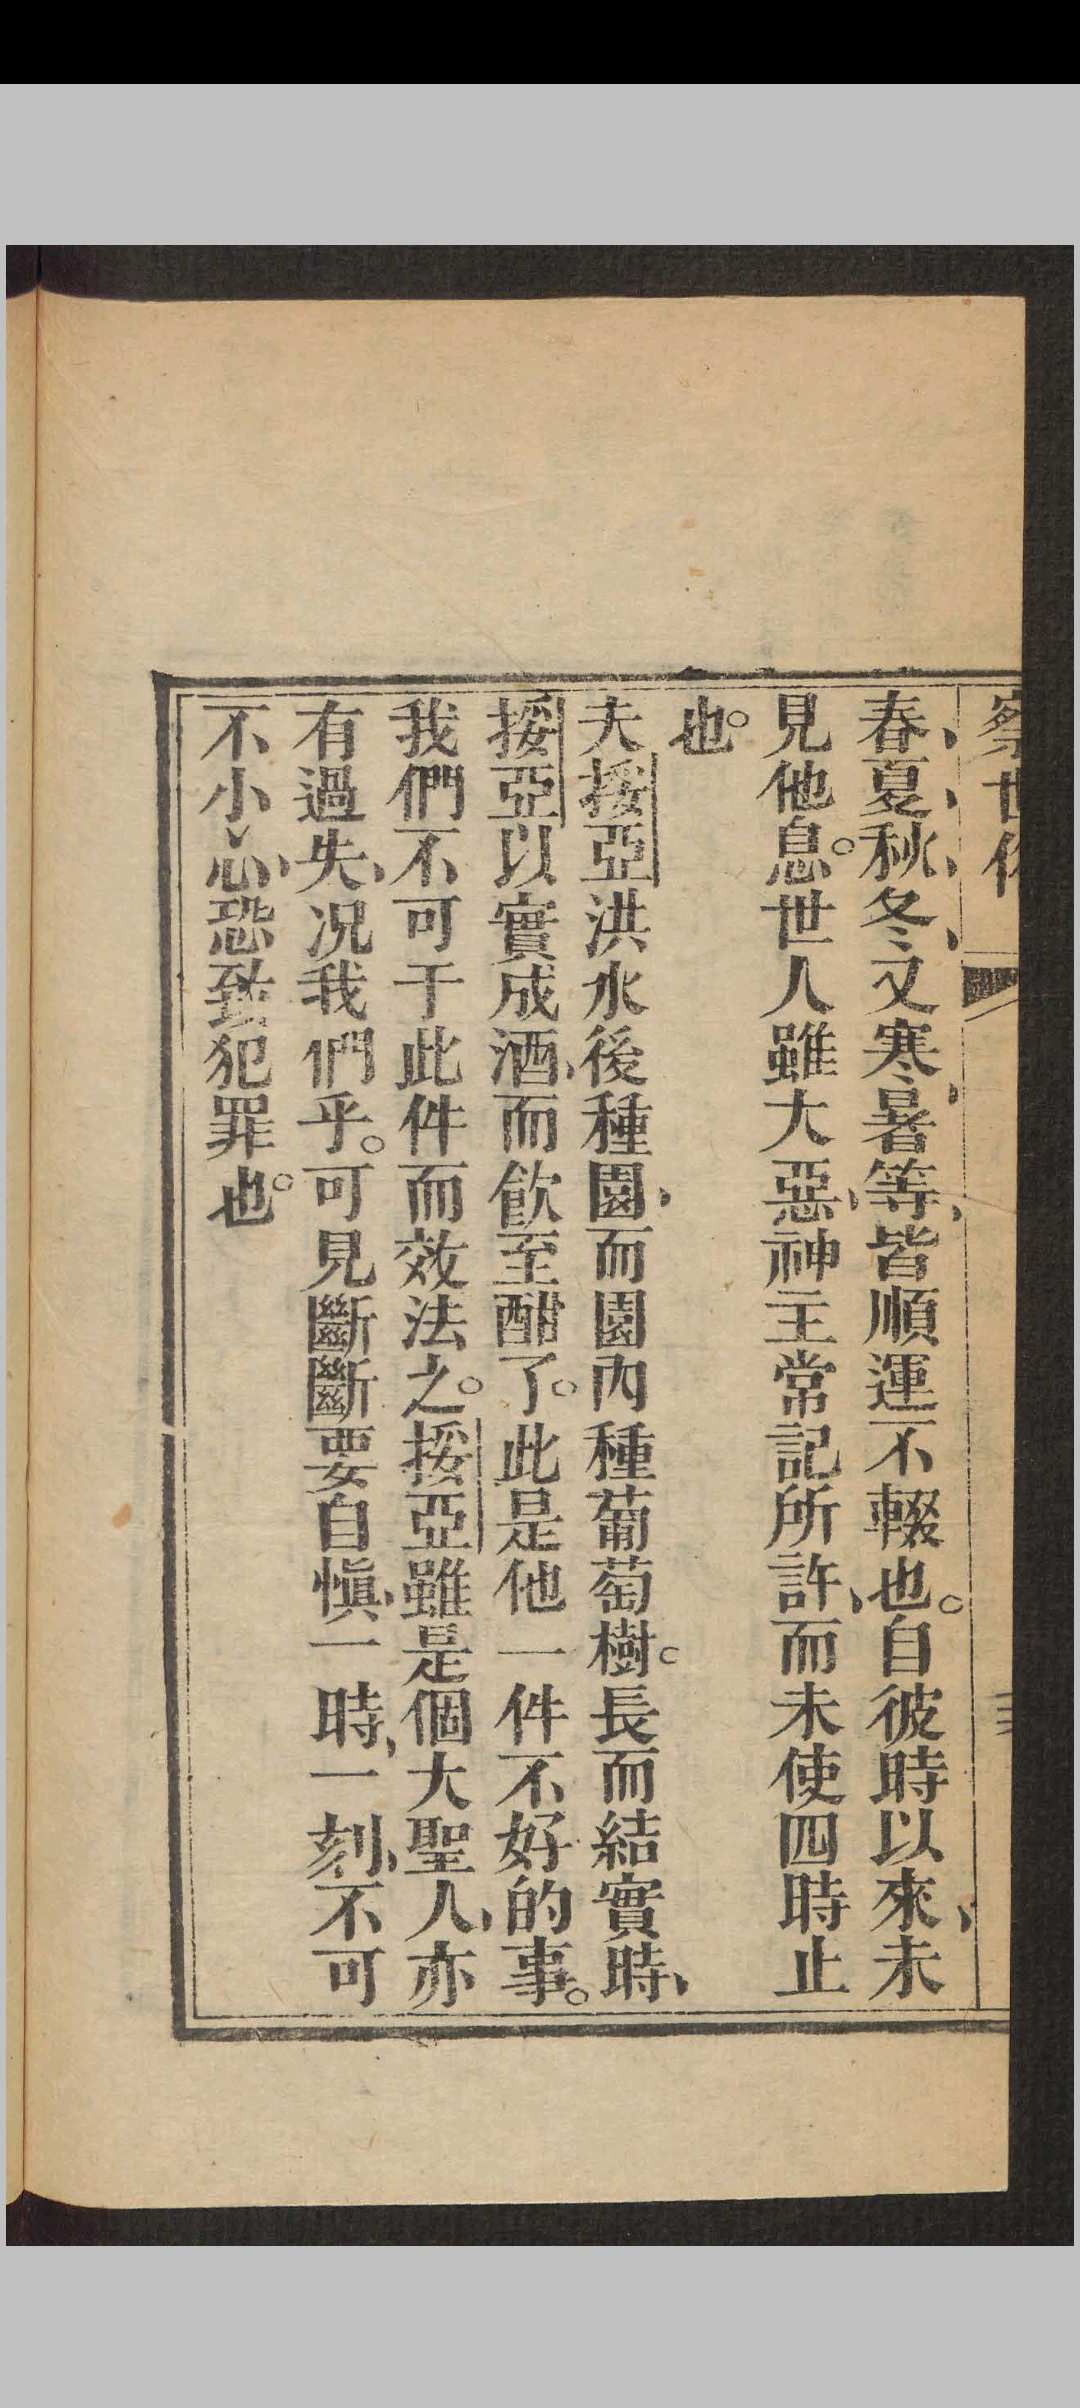 察世俗
春、夏、秋、冬、又寒、暑等、皆順運不輟也。自彼時以來、未
見他息。世人雖大惡、神主常記所許、而未使四時止
也。
夫挼亞洪水後種園、而園內種葡萄樹。長而結實時、
挼亞以實成酒、而飲至酣了。此是他一件不好的事。
我們不可于此件而效法之。挼亞雖是個大聖人、亦
有過失、况我們乎。可見斷斷要自愼、一時、一刻、不可
不小心、恐致犯罪也。